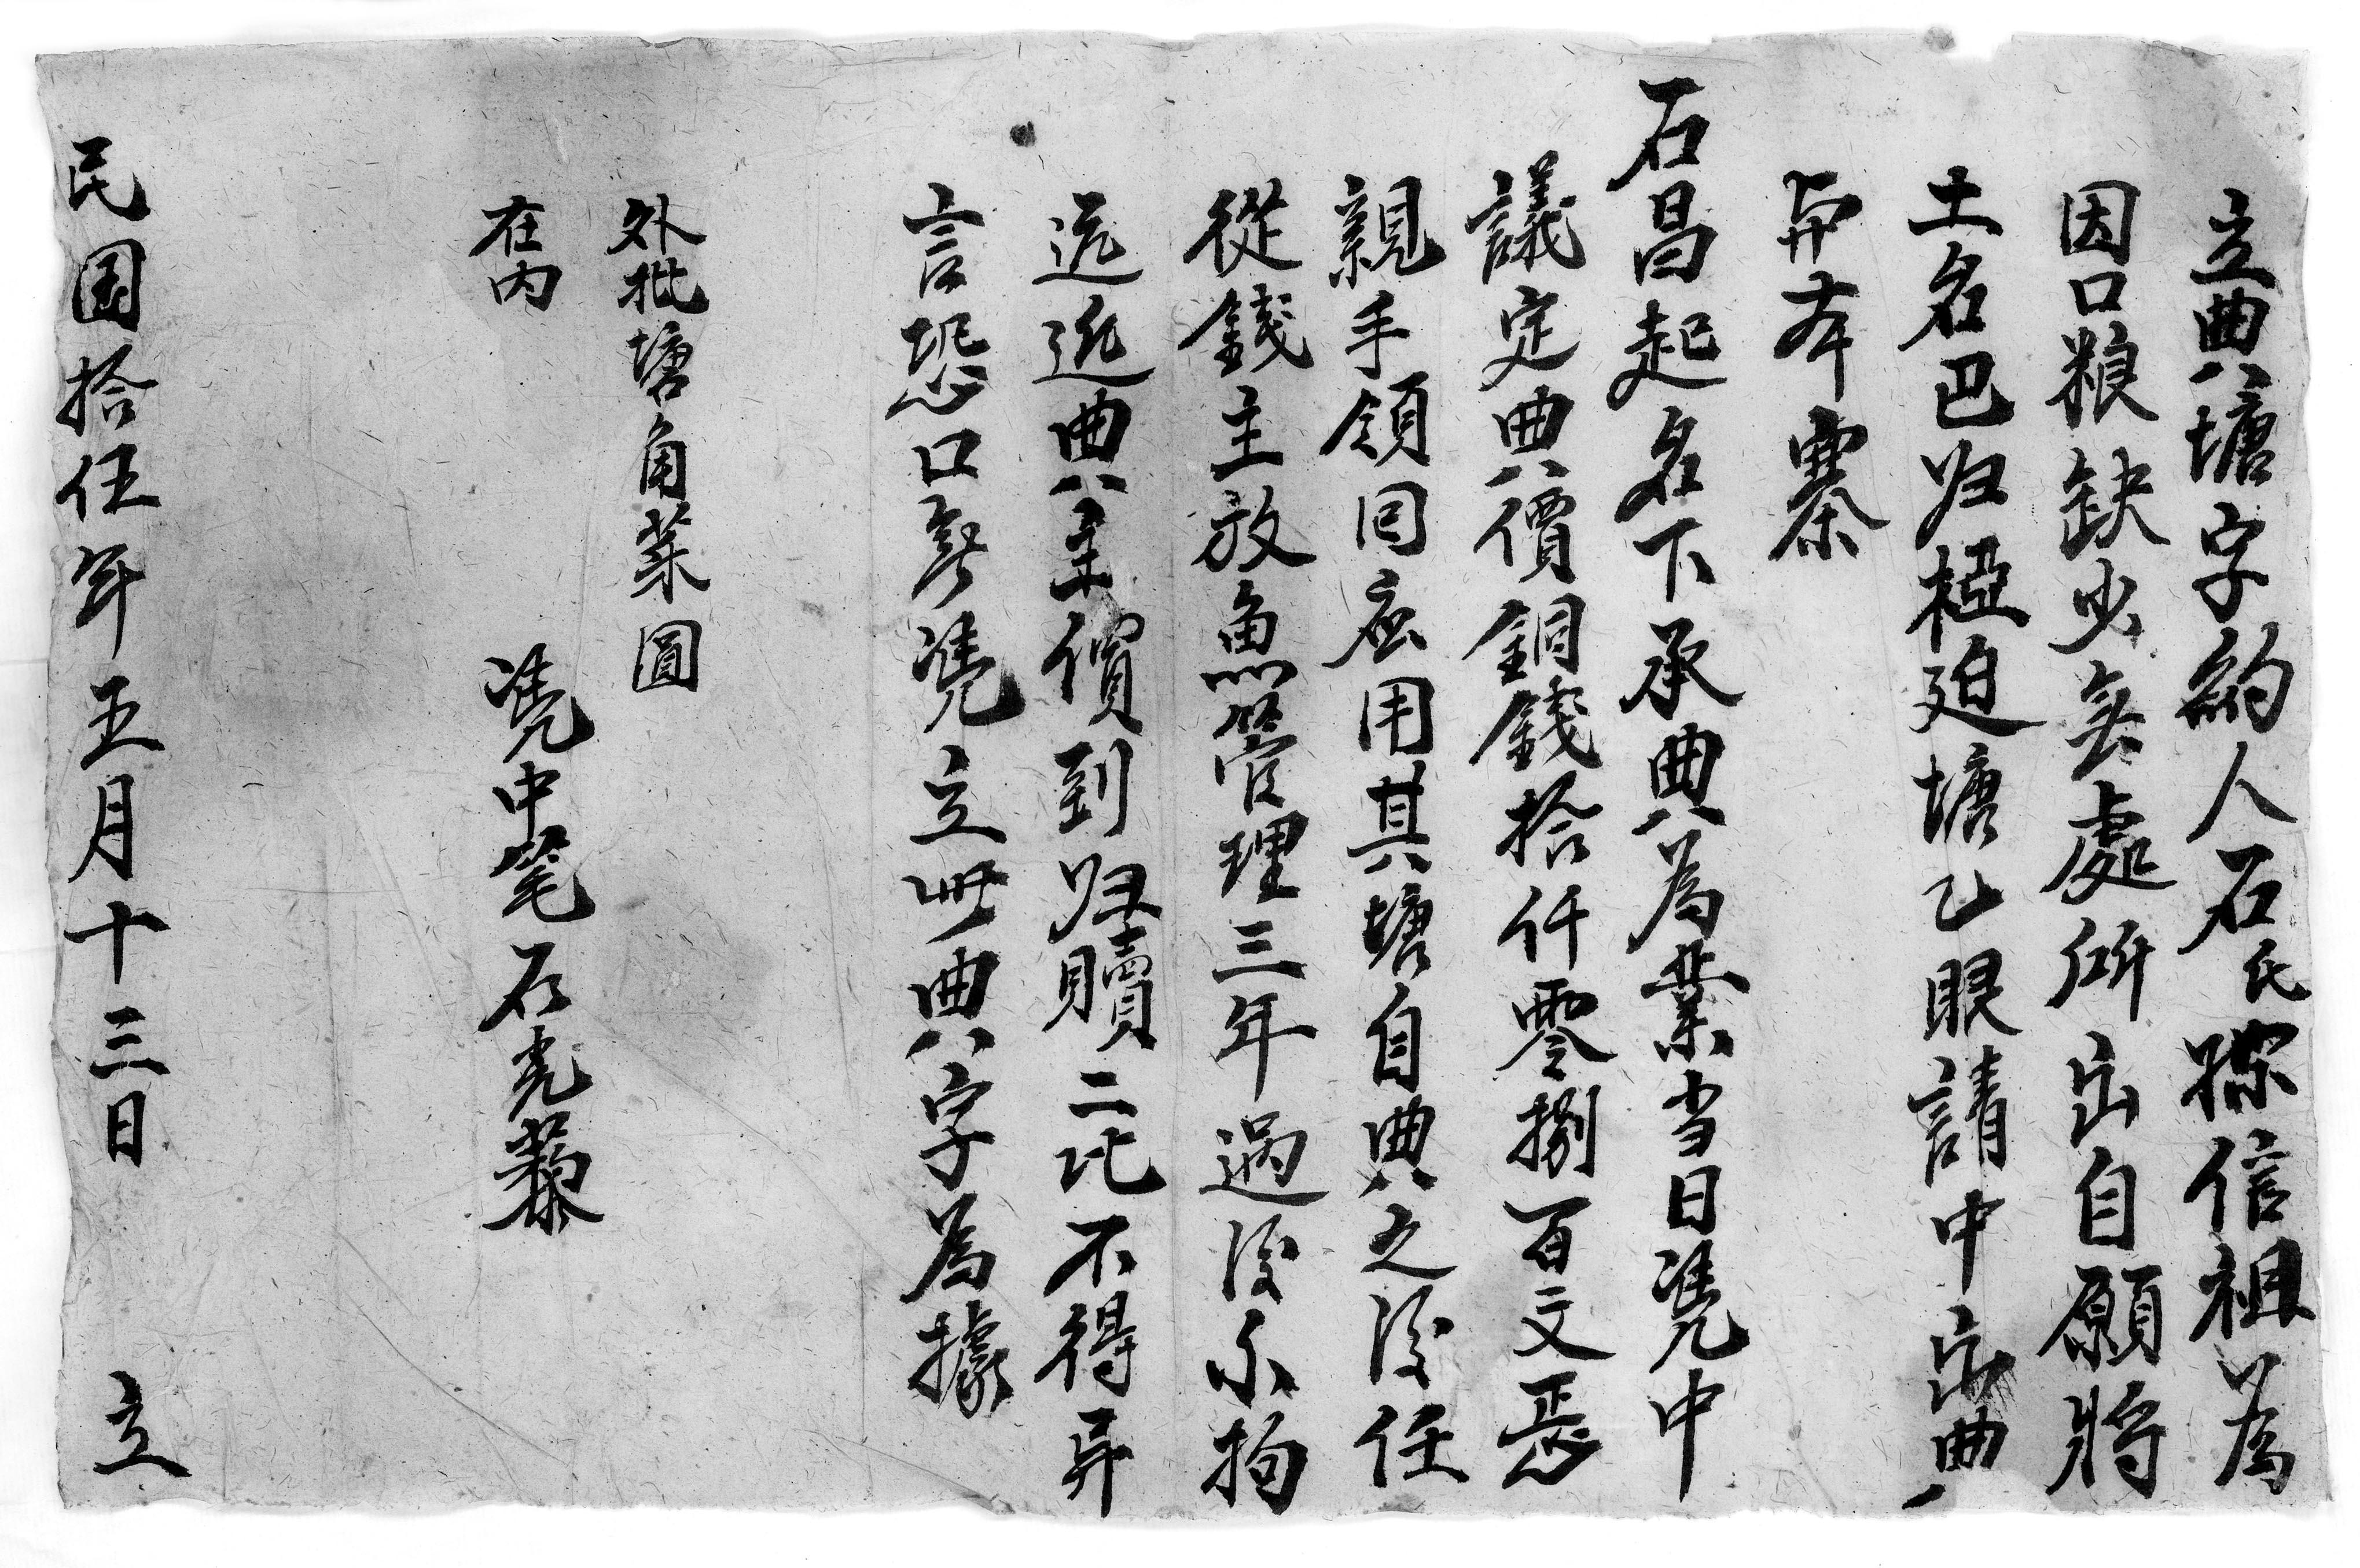 立典塘字約人石氏探信祖為
因口粮缺少無處所出自願將
土名巴归椏廹塘乙眼請中出典
與本寨
石昌起名下承典為業当日凴中
議定典價銅錢拾仟零捌百文恁
親手領回应用其塘自典之後任
從錢主放魚管理三年過後不拘
远近典主價到归贖二比不得异
言恐口無凴立此典字為據
外批塘角菜園
在内
凴中筆石光藜
民国拾伍年五月十三日 立